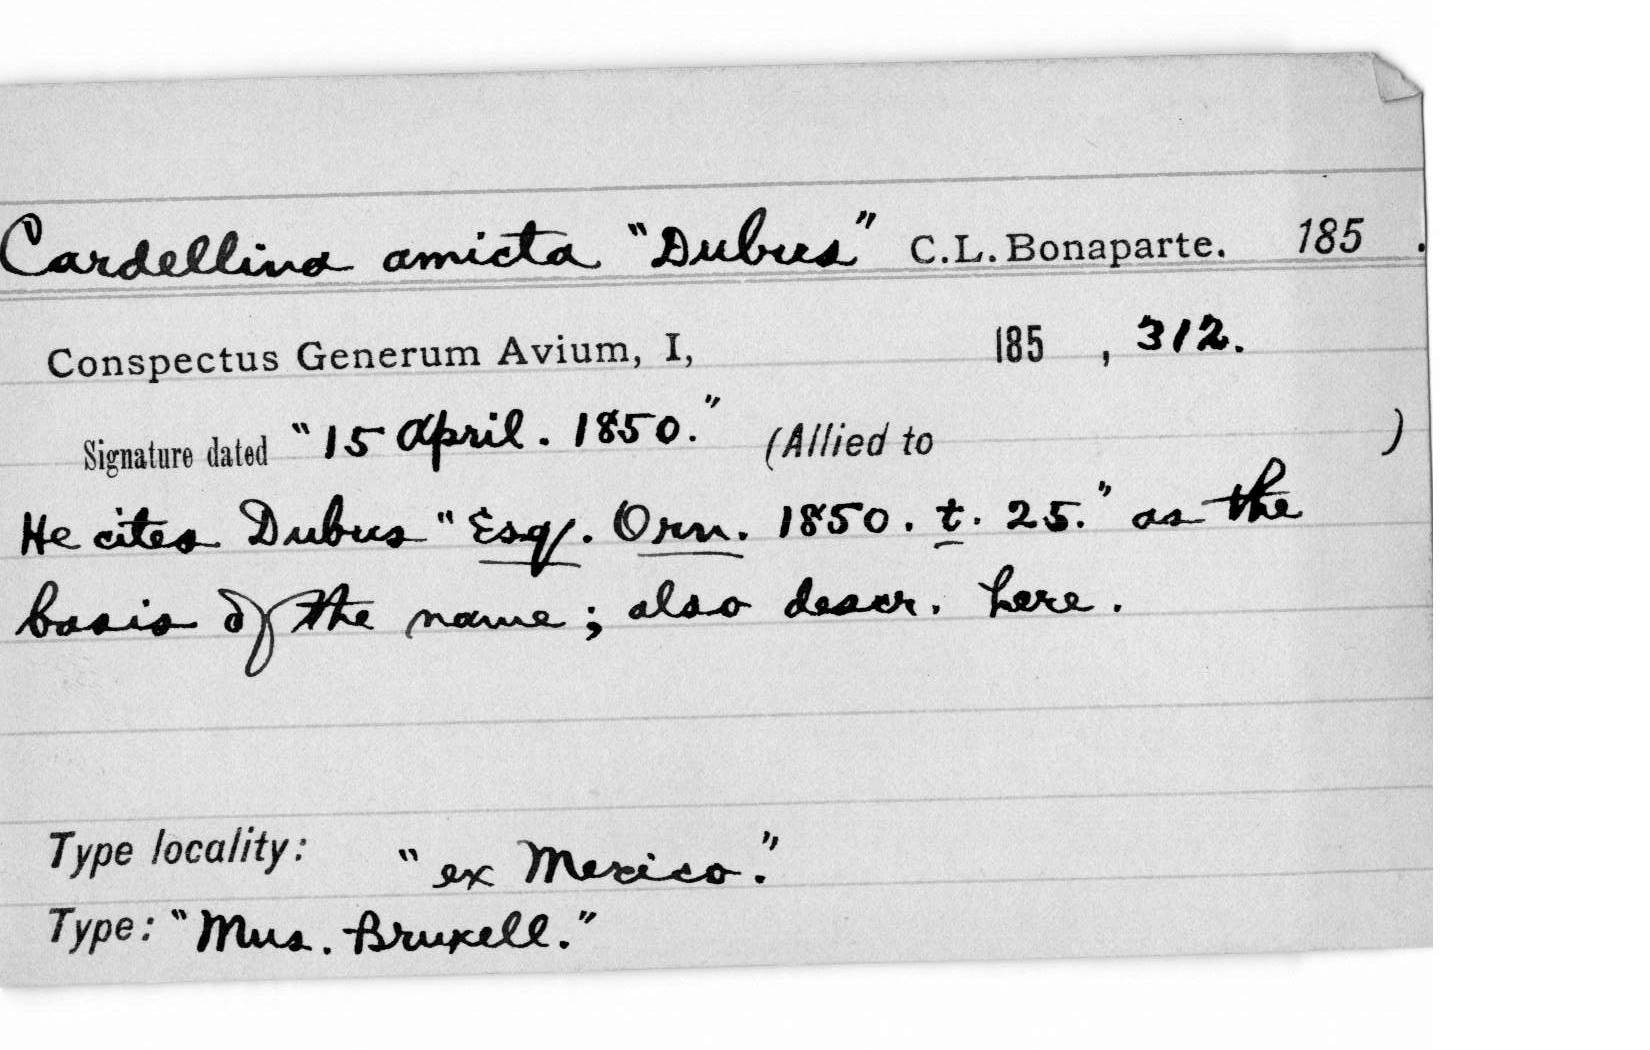 Cardellina amicta "Dubus" C.L. Bonaparte. 185 .
Conspectus Generum Avium, I, 185 , 312.
Signature dated "15 April. 1850." (Allied to )
He cites Dubus "Esq. Orn. 1850. t. 25." as the
basis of the name; also descr. here.
Type locality: "ex Mexico."
Type: "Mus. Bruxell."